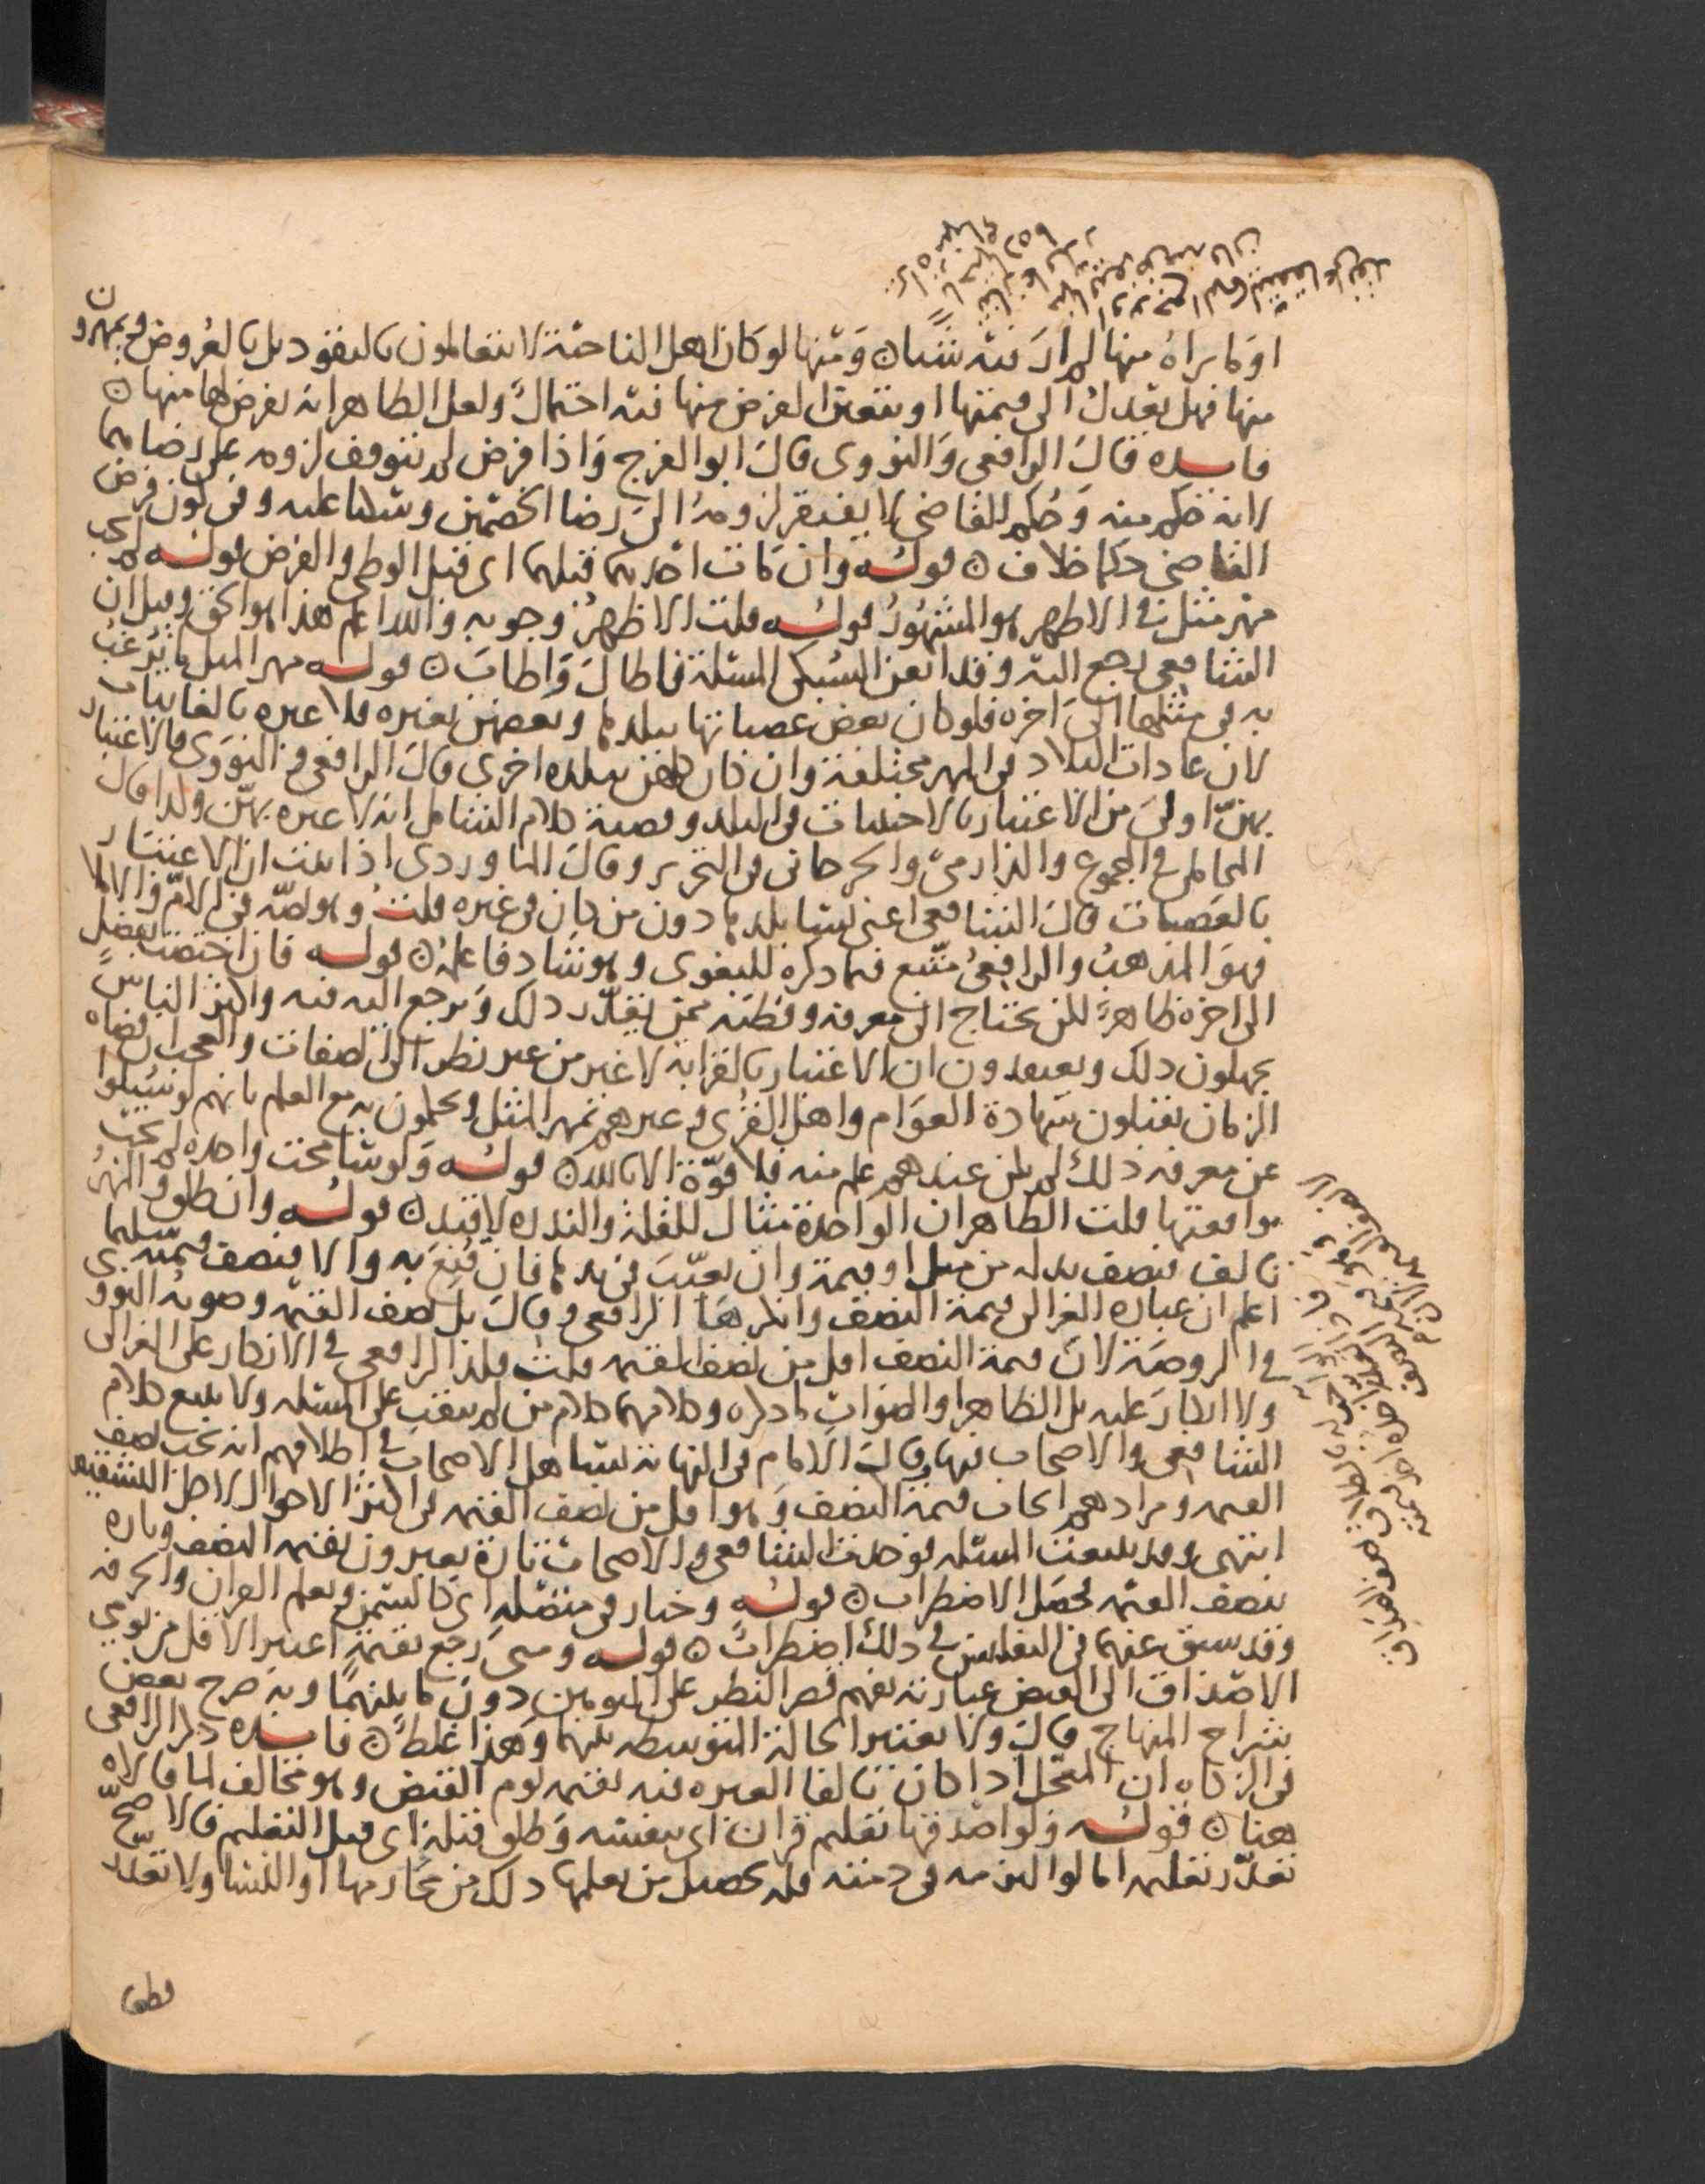 او ما يراه منها لم ار فيه شيئا ومنها لو كان اهل الناحية لا يتعاملون بالنقود بل بالعروض ويمهرون
منها فهل يعدل الى قيمتها او يتعين الفرض منها فيه احتمال ولعل الظاهر انه يفرض لها منها
فايده قال الرافعي والنووي قال ابو الفرج واذا فرض لم يتوقف لزومه على رضاهما
لانه حكم منه وحكم القاضي لا يفتقر لزومه الى رضا الخصمين وسكتا عليه وفي كون فرض
القاضي حكما خلاف قوله وان مات احدهما قبلهما اى قبل الوطي والفرض قوله لم يجب
مهر مثل في الاظهر هو المشهور قوله قلت الاظهر وجوبه والله اعلم هذا هو الحق وقيل ان
الشافعي رجع اليه وقد امعن السبكي المسئلة فاطال واطاب قوله مهر المثل ما يرغب
به في مثلها الى اخره فلو كان بعض عصباتها ببلدها وبعضهن بغيره فلا عبره بالغايبات
لان عادات البلاد في المهر مختلفة وان كان كلهن ببلده اخرى قال الرافعي والنووي فالاعتبار
بهن اولى من الاعتبار بالاجنبيات في البلد وقضية كلام الشامل انه لا عبره بهن ولذا قال
المحاملي في المجموع والدارمي والجرجاني في التحرير وقال الماوردي اذا ثبت ان الاعتبار
بالعصبات قال الشافعي اعني نسا بلدها دون من كان في غيره قلت وهو نصه في الام والاملا
فهو المذهب والرافعي متبع فيما ذكره للبغوي وهو شاذ فاعلمه قوله فان اختصت بفضل
الى اخره ظاهر لكن يحتاج الى معرفه وفطنه ممن يقدر ذلك ويرجع اليه فيه واكثر الناس
يجهلون ذلك ويعتقدون ان الاعتبار بالقرابة لا غير من غير نظر الى الصفات والعجب ان قضاه
الزمان يقبلون شهادة العوام واهل القرى وغيرهم بمهر المثل ويحكمون به مع العلم بانهم لو سئلوا
عن معرفه ذلك لم يكن عندهم علم منه فلا قوة الا بالله قوله ولو سامحت واحده لم يجب
موافقتها قلت الظاهر ان الواحدة مثال للقلة والندره لا قيد قوله وان طلق والمهر
تالف فنصف بدله من مثل او قيمة وان تعيب في يدها فان قنع به والا فنصف قيمته سليما
اعلم ان عباره الغزالي قيمة النصف وانكرها الرافعي وقال بل نصف القيمه وصوبه النووي
في الروضة لان قيمة النصف اقل من نصف القيمه قلت قلد الرافعي في الانكار على الغزالي
ولا انكار عليه بل الظاهر او الصواب ما ذكره وكلامهما كلام من لم يقف على المسئله ولا بليغ كلام
الشافعي والاصحاب فيها وقال الامام في النهاية تساهل الاصحاب في اطلاقهم انه يجب نصف
القيمه ومرادهم ايجاب قيمة النصف وهو اقل من نصف القيمه في اكثر الاحوال لاجل التشقيص
انتهى وقد تتبعت المسئله فوجدت الشافعي والاصحاب تارة يعبرون بقيمه النصف وتاره
بنصف القيمه فحصل الاضطراب قوله وخيار في متصلة اى كالسمن وتعلم القران والحرفه
وقد سبق عنهما في التفليس في ذلك اضطراب قوله ومتى رجع بقيمة اعتبر الاقل من يومي
الاصداق الى القبض عبارته تفهم قصر النظر على اليومين دون ما بينهما وبه صرح بعض
شراح المنهاج قال ولا يعتبر الحالة المتوسطه بينهما وهذا غلط فايده ذكر الرافعي
في الزكاه ان المعجل اذا كان تالفا العبره فيه بقيمه يوم القبض وهو مخالف لما قالاه
هنا قوله ولو اصدقها تعليم قران اى بنفسه وطلق قبله اى قبل التعليم فالاصح
تعذر تعليمه اما لو التزمه في ذمته فله تحصيل من يعلمها ذلك من محارمها او النسا ولا تعذر
فطعا